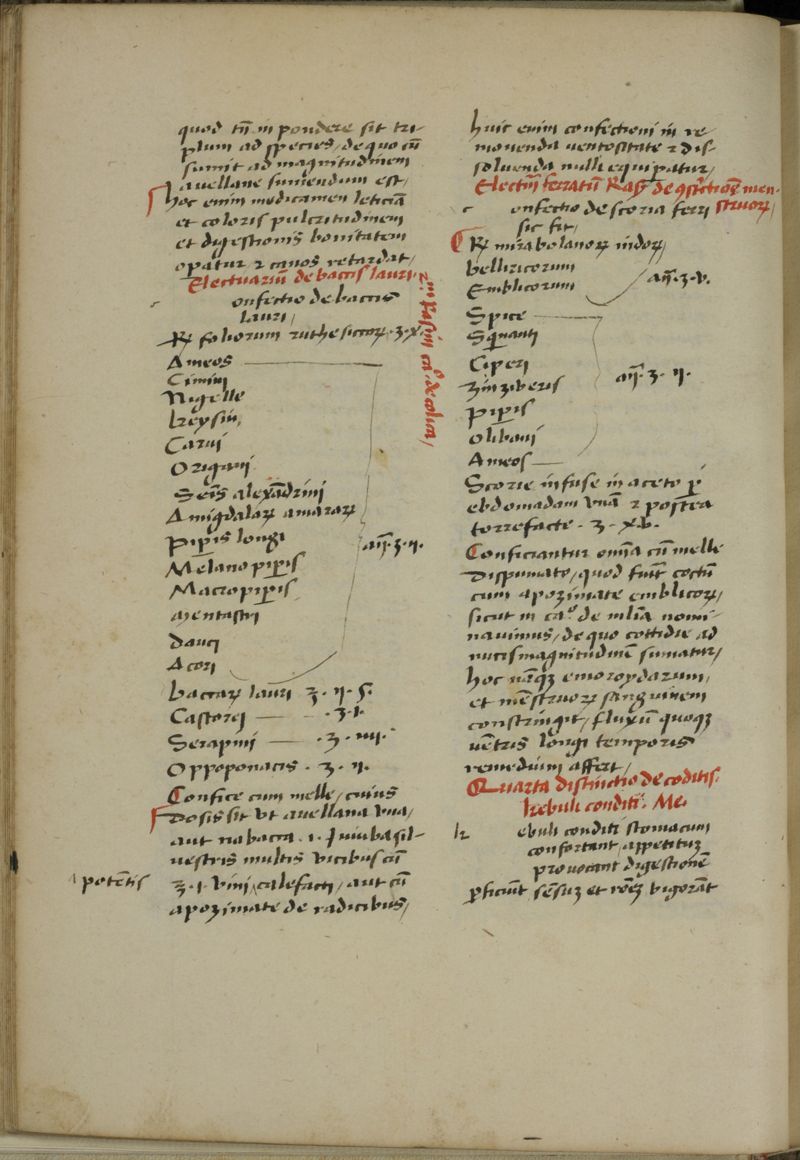 quod tn̄ in pondere sit tri-
plum ad species, de quo cū
sumit ad magnitudinem
auellane sumendum est,
hoc enim medicamen leticiā
et coloris pulcritudinem
et digestionis bonitatem
operatur ⁊ canos retardat,
Electuariū de baccis lauri
onfectio de baccis
lauri,
℞ foliorum ruthe siccoꝝ ʒ x
Ameos
Cimini
Nigelle
Carui
Origani
Seīs alexādrini
Amigdalaꝝ amaraꝝ
piꝑis longi
Melanopiꝑis
Macropiꝑis
Mentastri
Dauci
Acori
añ. ʒ. ij.
baccaꝝ lauri ʒ. ij. s.
Castorej ʒ. i.
Serapini ʒ. iiij.
Oppoponacis. ʒ. ij.
Confice cum melle, cuius
dosis sit vt auellana vna,
aut na bacca .i. Juiuba sil-
uestris multis vicibus cū
ʒ. i. vini calefacti, aut cū
apozimate de radicibus,
potētis
huic enim confectioni in re
mouenda uentositate ⁊ dis-
soluenda nulli equipatur,
Electm̄ ferratū Rasꝭ de men-
struoꝝ,
onfectio de scoria ferri
sic fit,
℞ mirabolanoꝝ indoꝝ,
belliricorum
Emblicorum
añ. ʒ. v.
Spice
Sq̄nanti
Ciperi
zinziberis
piꝑis
Olibani
Ameos
añ. ʒ. ij.
Scorie infuse in aceto ꝑ
ebdomadam vnā ⁊ postea
torrefacte. ʒ. xl.
Conficiantur om̄ia cū melle
dispumato, quod fuīt coctū
cum apozimate emblicoꝝ,
sicut in caº de milīa nomi-
nauimus, de quo cottidie ad
nucis magnitudinē sumatur,
hoc nāqꝫ emoroydarum,
et mēstruoꝝ sanguinem
constringit, fluxū quoqꝫ
uētris longi temporis
remedium affert,
Quarta distinctio de cōditis.
kebuli conditi. Me.
k ebuli conditi stomacum
confortant, appetitum
prouocant digestionē
ꝑficiunt sēsuꝫ et rōeꝫ vigorāt